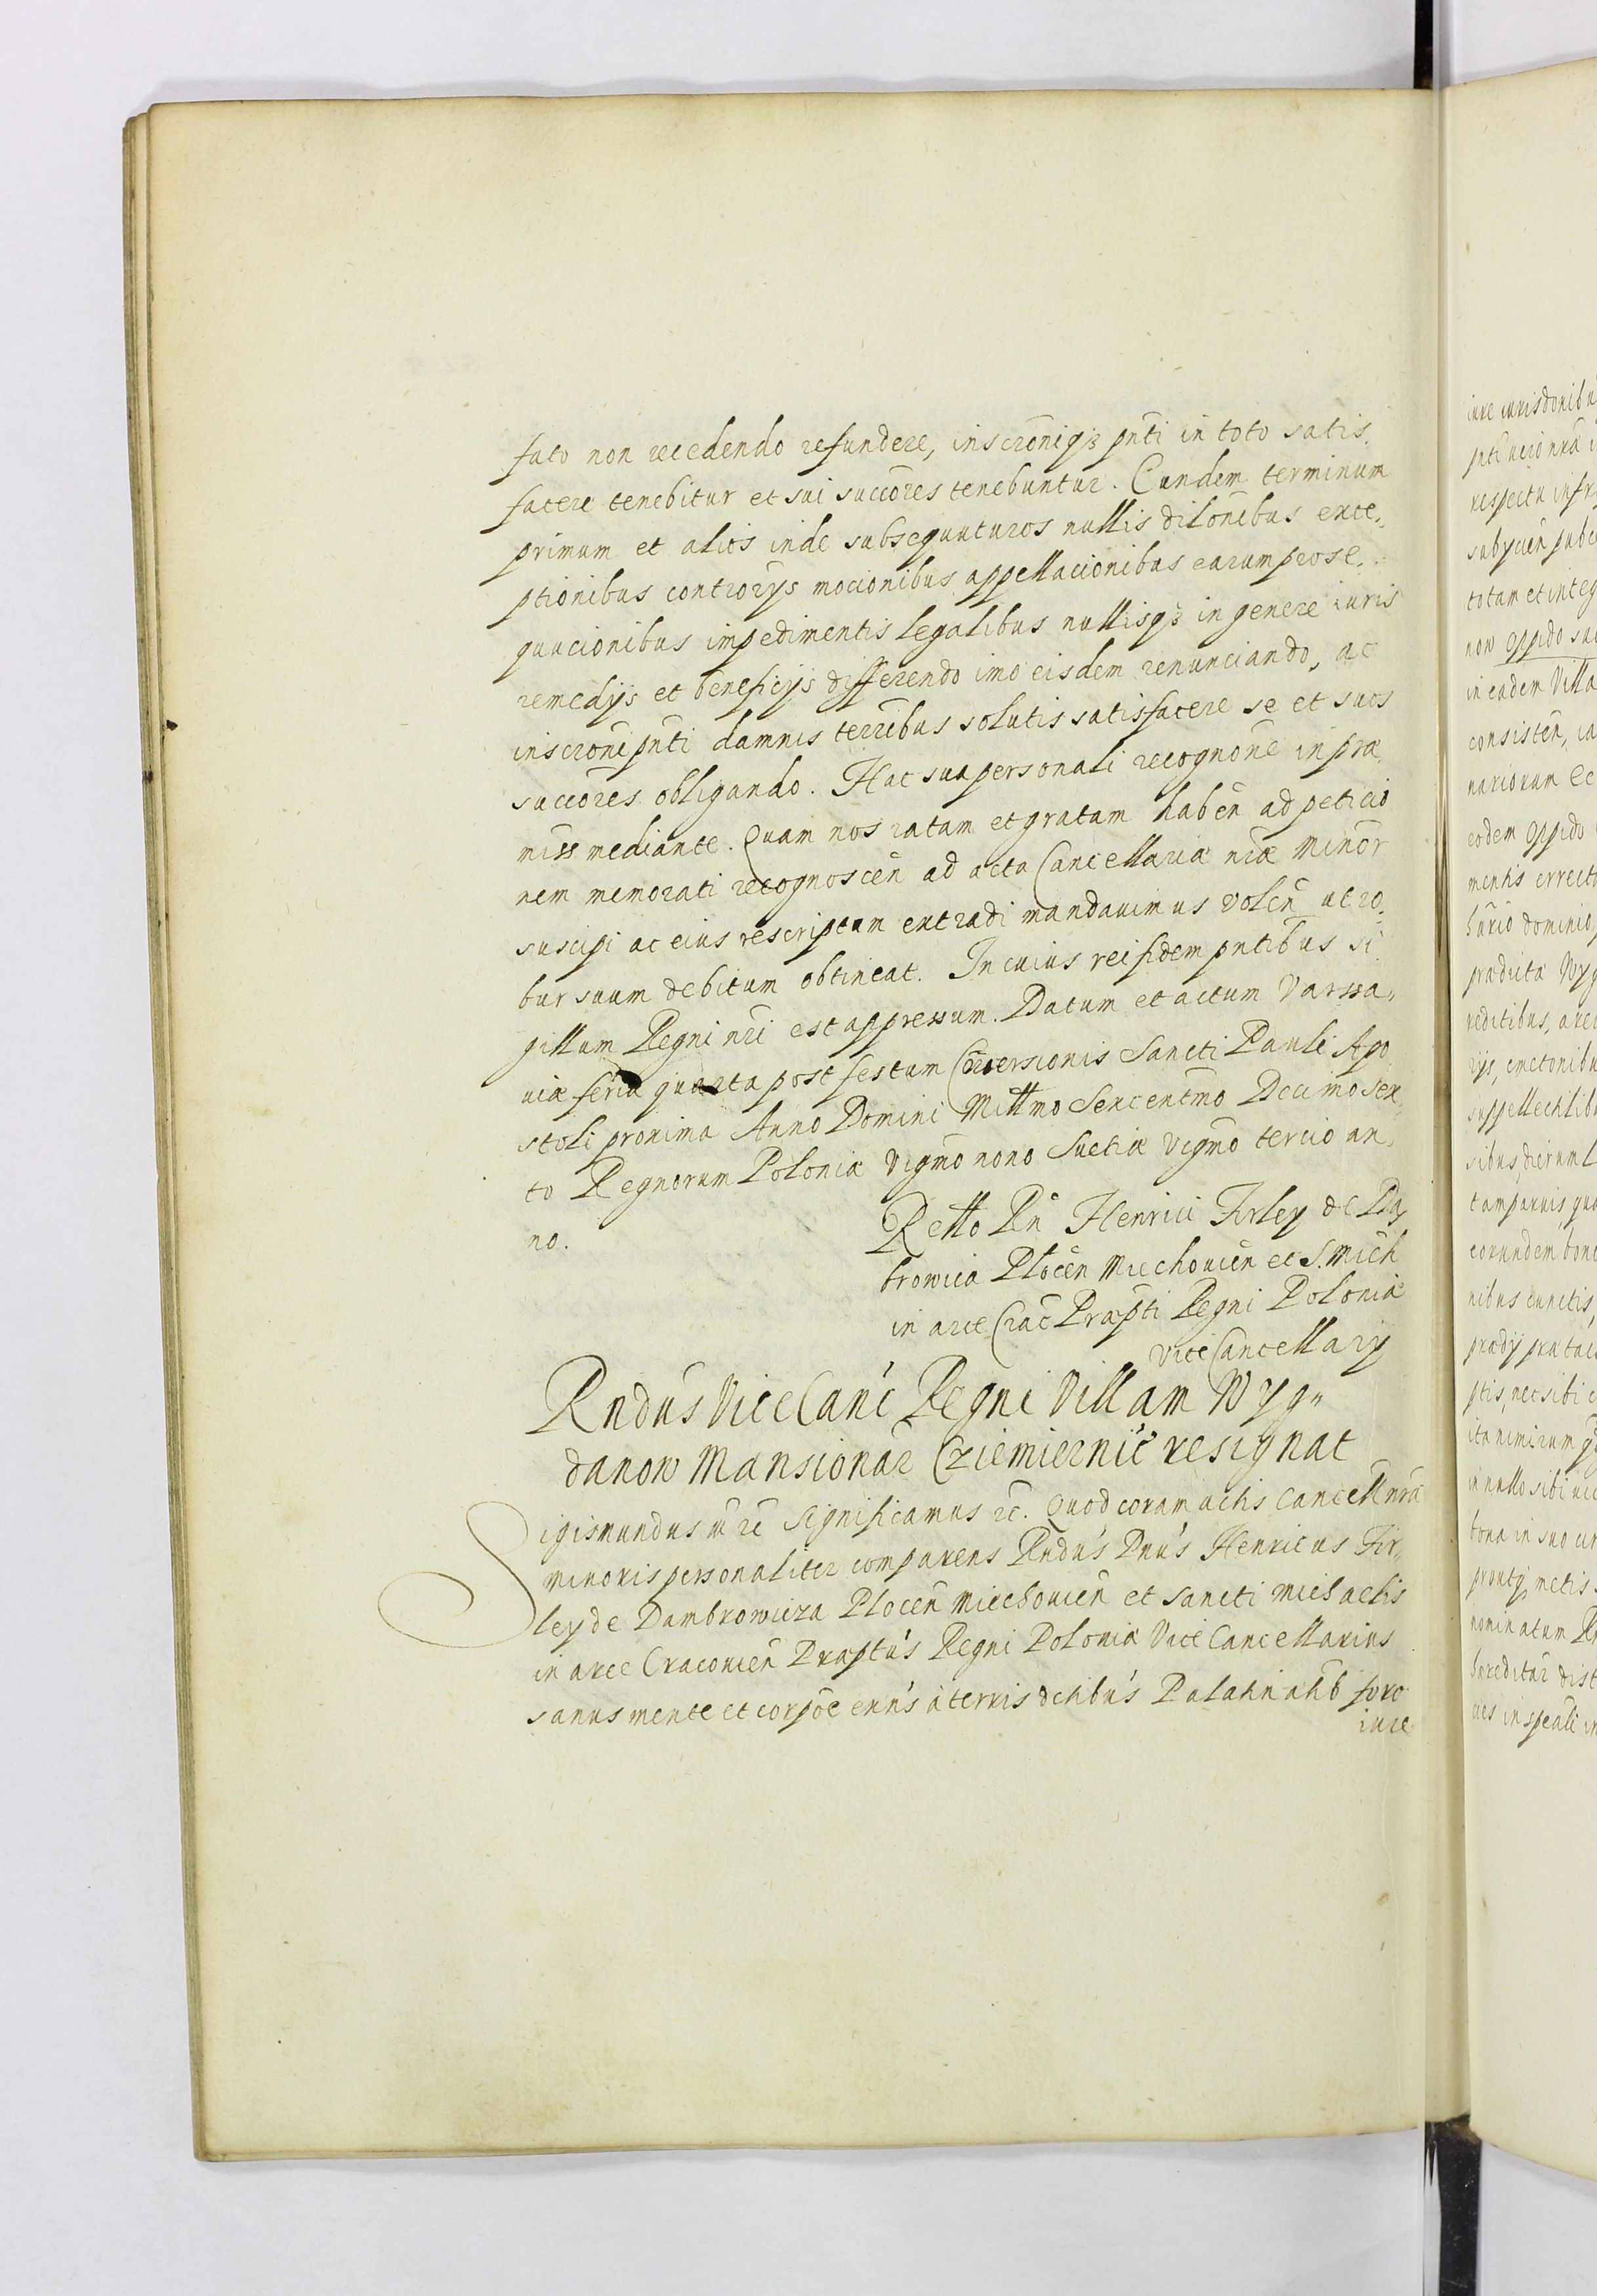 fato non recedendo refundere, inscrõniq3 pñti in toto satis,
facere tenebitur et sui succõres tenebuntur. Eundem terminum
primum et alios inde subsequuturos nullis dilõnibus exce,
ptionibus controrijs mocionibus appellacionibus earum prose,
quucionibus impedimentis legalibus nullisq3 in genere iuris
remedijs et beneficijs differendo imo eisdem renunciando, ac
inscrõni pñti damnis terrẽbus solutis satisfacere se et suos
succõres obligando. Hac sua personali recognõne in præ,
miss mediante. Quam nos ratam et gratam habẽn ad peticio
nem memorati recognoscẽn ad acta Cancellariæ nr̃æ Minõr
suscipi ac eius rescriptum extradi mandauimus volẽn ut ro,
bur suum debitum obtineat. In cuius rei fidem pñtibus si,
gillum Regni nr̃i est appressum. Datum et actum Varssa,
uiæ feria quarta post festum Cõuersionis Sancti Pauli Apo,
stoli proxima Anno Domini Millmo Sexcentmo Decimo sex,
to Regnorum Poloniæ Vigmõ nono Suetiæ vigmõ tercio an,
no.
Retto Rñ Henrici Firley de Da,
browica Plocẽn Miechouiẽn et S. Mich
in arce Crac Præpti Regni Poloniæ
vice Cancellarij
Rndus ViceCanc Regni Villam Wyg,,
danow Mansionar Cziemiernic resignat
Sigismundus ııı rc Significamus rc. Quod coram actis Cancell nr̃a
minoris personaliter comparens Rndus Dnus Henricus Fir,
ley de Dambrowicza Plocẽn Miechouiẽn et Sancti Michaelis
in arce Cracouiẽn Præptus Regni Poloniæ Vice Cancellarius
sanus mente et corpõe exñs à terris dctibus Palatinatib foro
iure